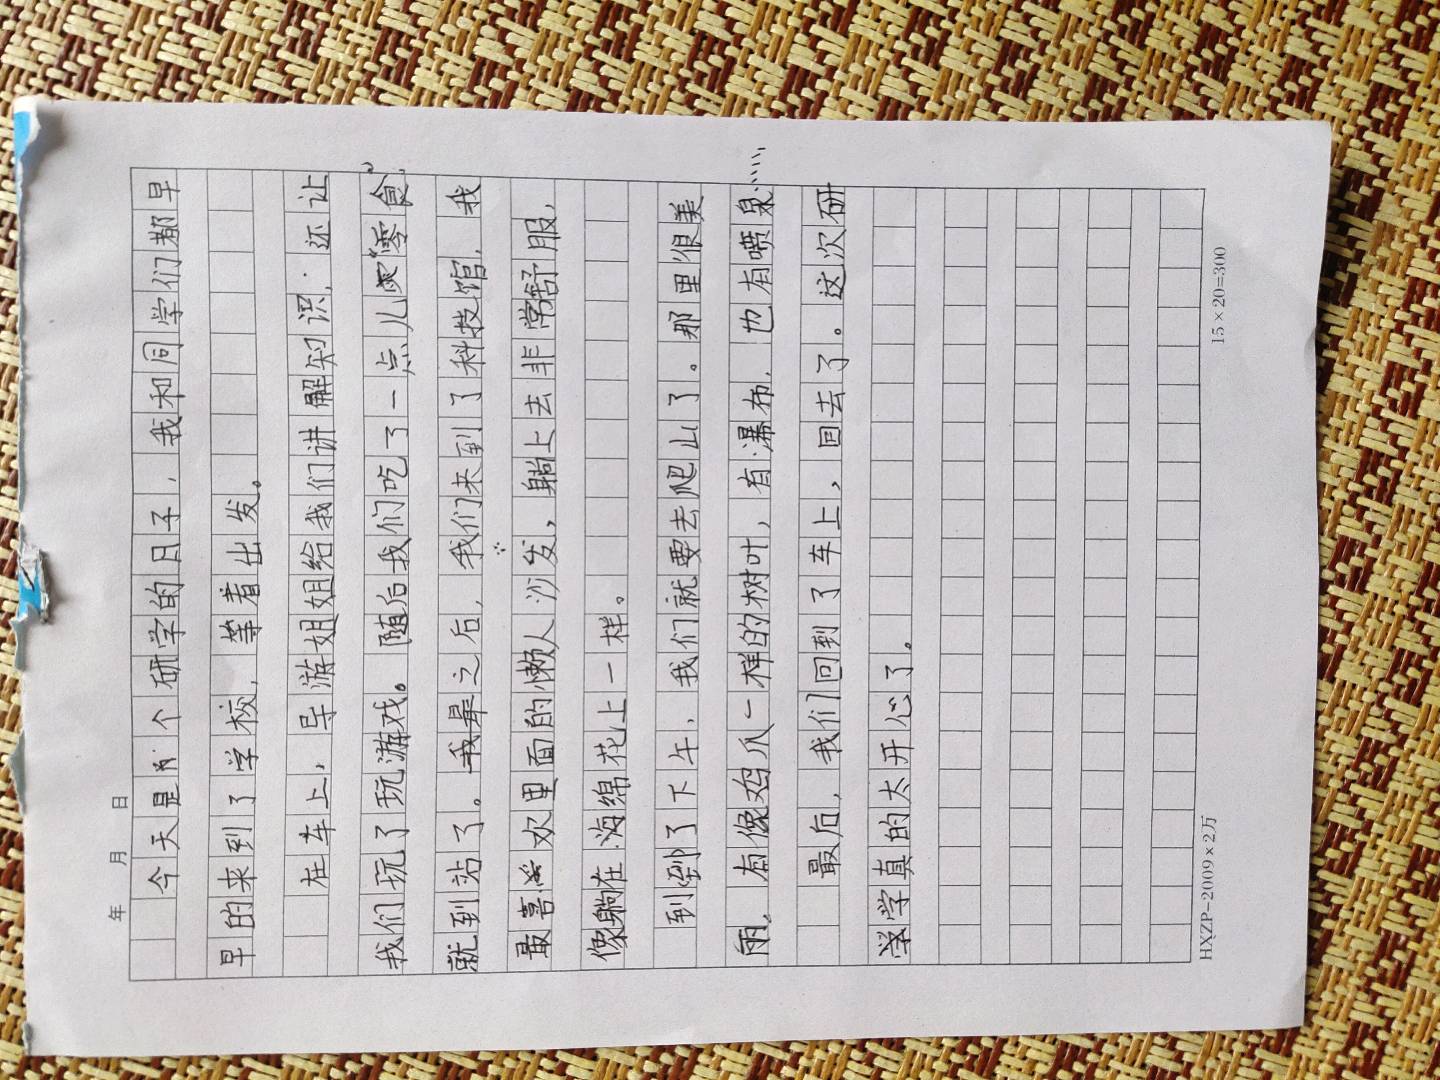 年 月 日
今天是个研学的日子，我和同学们都早
早的来到了学校，等着出发。
在车上，导游姐姐给我们讲解知识，还让
我们玩了玩游戏。随后我们吃了一点儿零食，
就到站了。最之后，我们来到了科技馆，我
最喜欢里面的懒人沙发，躺上去非常舒服，
像躺在海绵花上一样。
到到了下午，我们就要去爬山了。那里很美
丽，有像鸡爪一样的树叶，有瀑布，也有喷泉……
最后，我们回到了车上，回去了。这次研
学学真的太开心了。
HXZP-2009×2万
15×20=300